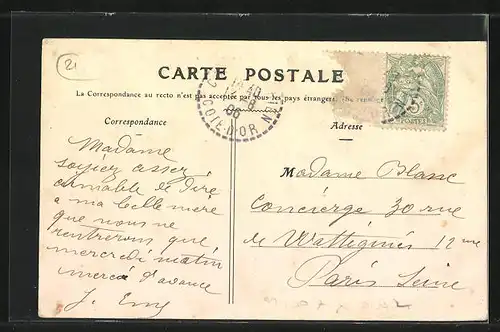 21
CARTE POSTALE
La Correspondance au recto n'est pas acceptée par tous les pays étrangers.
COTE-D'OR
Correspondance
Adresse
Madame
soyiez assez
aimable de dire
a ma belle mère
que nous ne
rentrerons que
mercredi matin
merci d'avance
Madame Blanc
Concierge 30 rue
de Wattignies 12me
Paris Seine